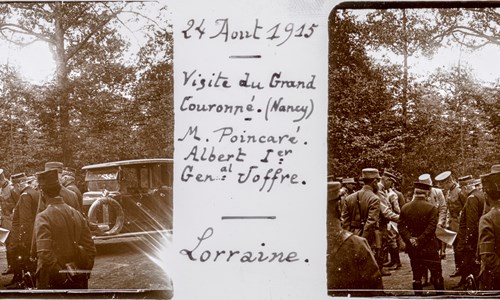 24 Aout 1915
Visite du Grand
Couronné. (Nancy)
M. Poincaré.
Albert Ier
Genal Joffre.
Lorraine.